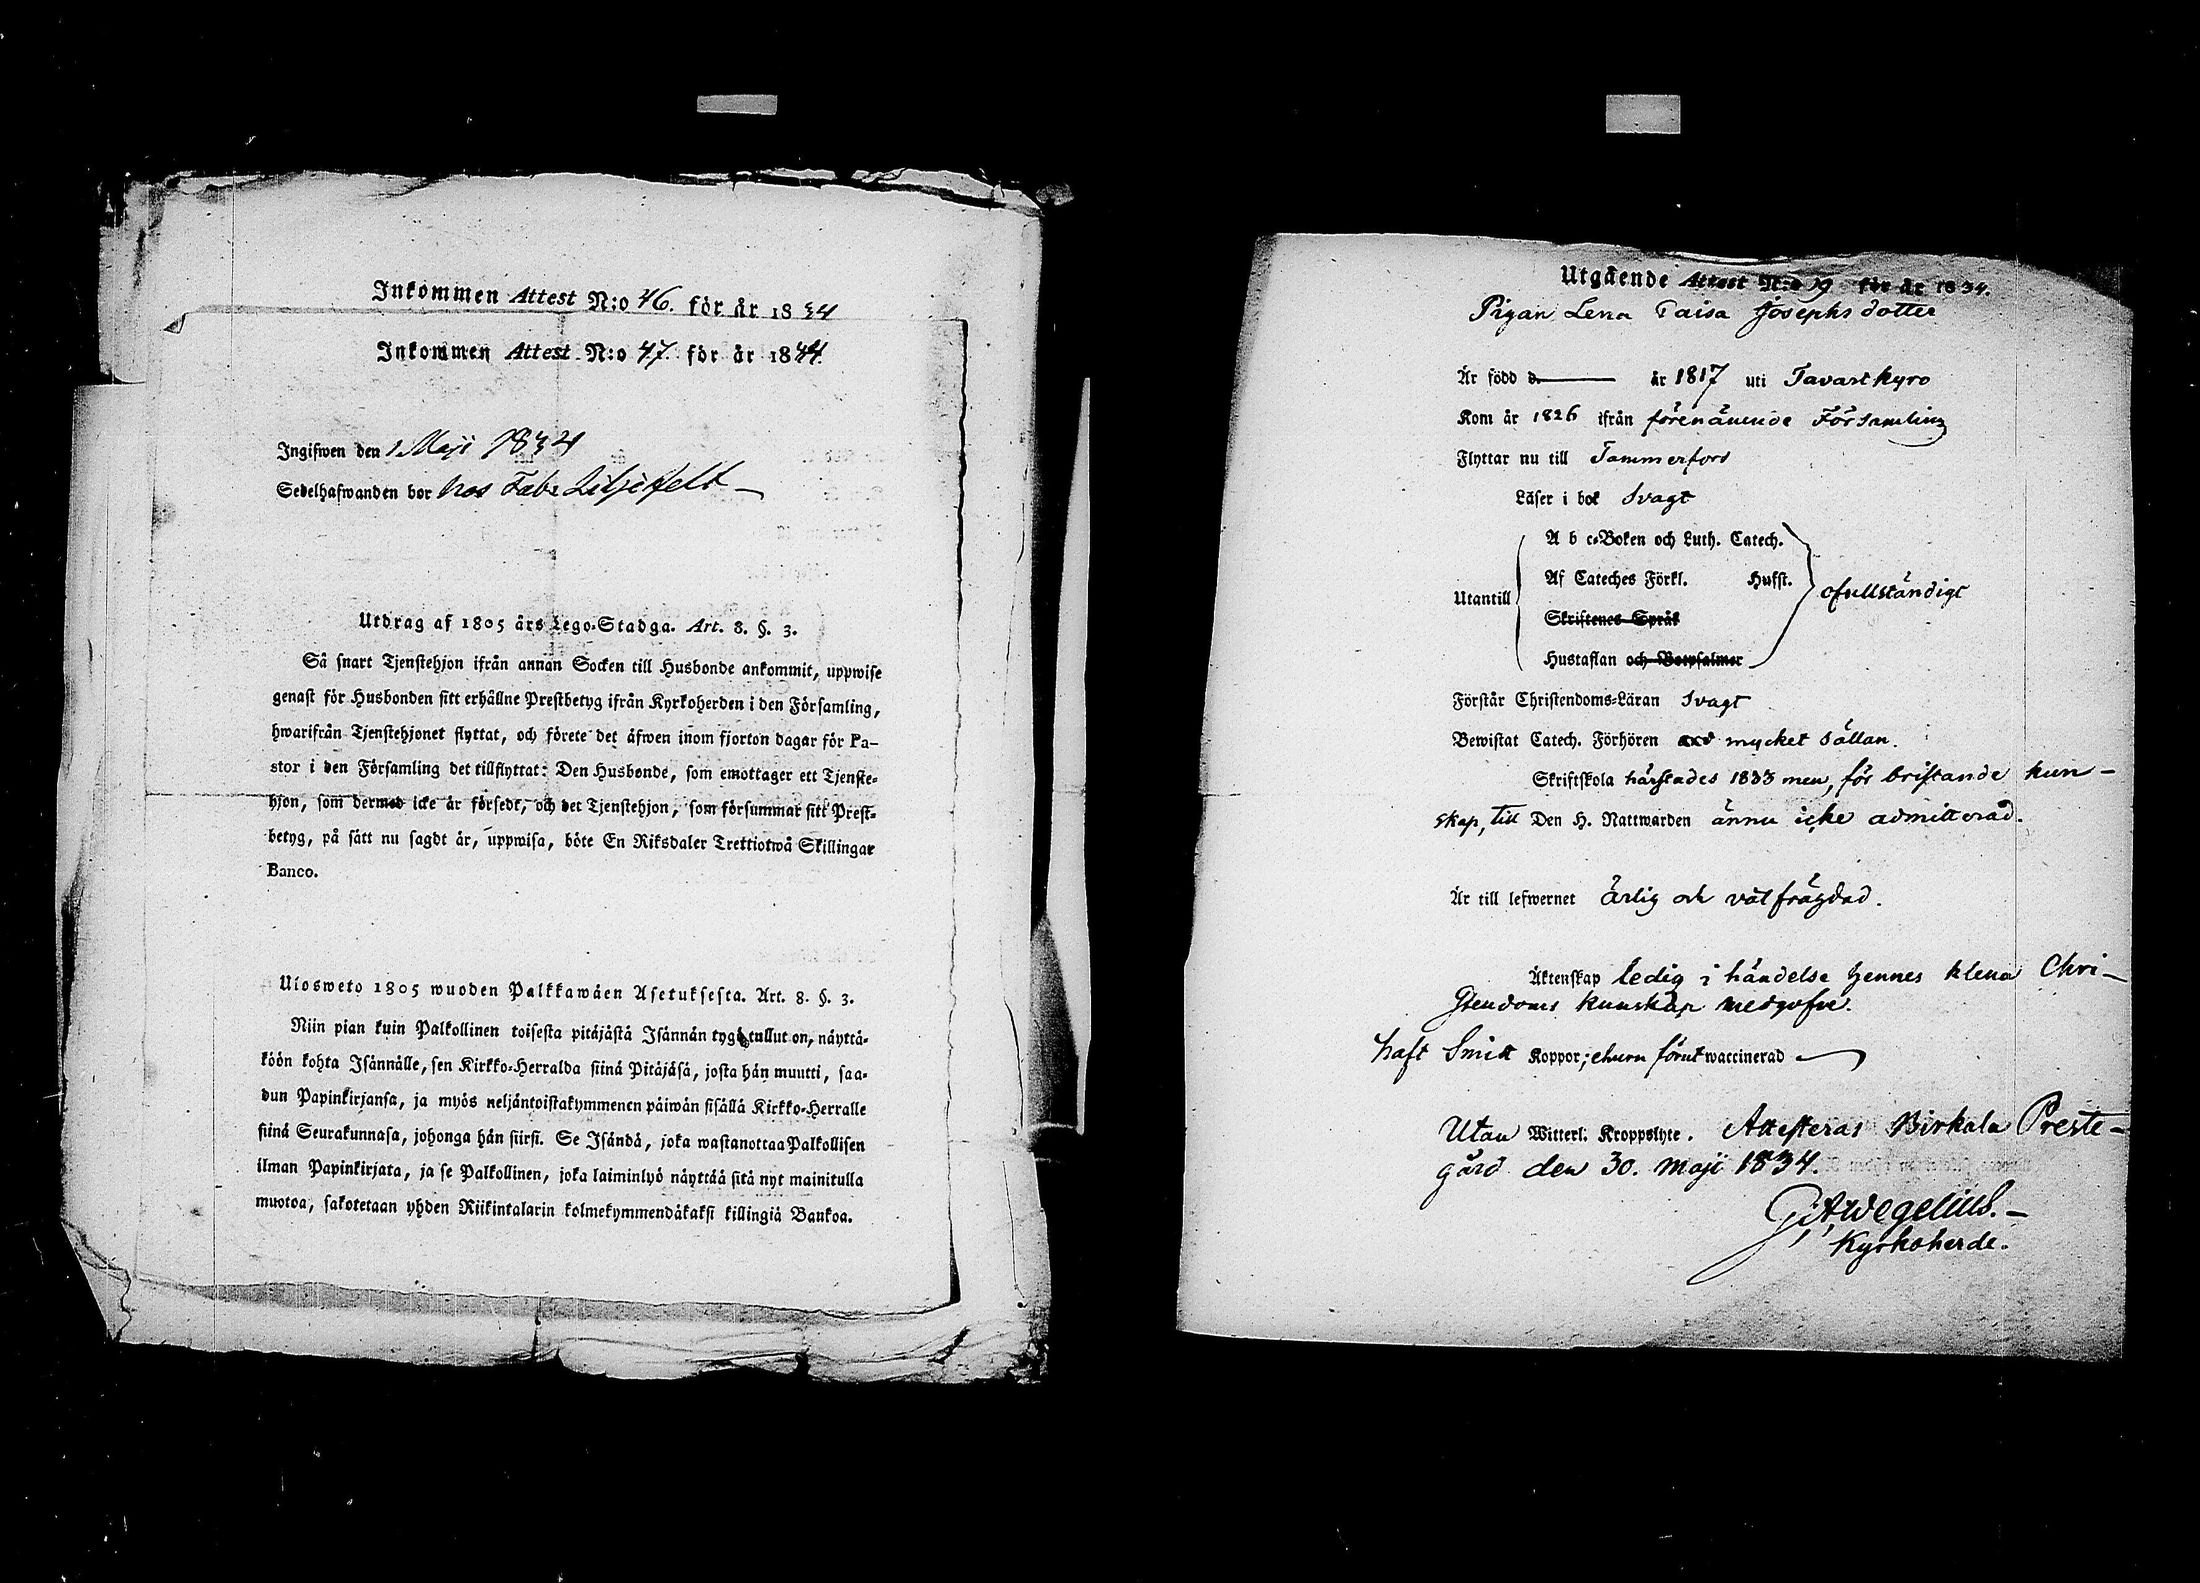 Inkommen Attest N:o 46. för år 1834
Inkommen Attest N:o 47. för år 1844.
Ingifwen den 1 Maji 1834
Sedelhafwanden bor hos Fabr Liljefelt
Utdrag af 1805 års Lego-Stadga. Art. 8. §. 3.
Så snart Tjenstehjon ifrån annan Socken till Husbonde ankommit, uppwise
genast för Husbonden sitt erhållne Prestbetyg ifrån Kyrkoherden i den Församling,
hwarifrån Tjenstehjonet flyttat, och förete det äfwen inom fjorton dagar för Pa-
stor i den Församling det tillflyttat: Den Husbonde, som emottager ett Tjenste-
hjon, som dermed icke är försedt, och det Tjenstehjon, som försummar sitt Prest-
betyg, på sätt nu sagdt är, uppwisa, böte En Riksdaler Trettiotwå Skillingar
Banco.
Ulosweto 1805 wuoden Palkkawäen Asetuksesta. Art. 8. §. 3.
Niin pian kuin Palkollinen toisesta pitäjästä Isännän tygö tullut on, näyttä-
köön kohta Isännälle, sen Kirkko-Herralda siinä Pitäjäsä, josta hän muutti, saa-
dun Papinkirjansa, ja myös neljäntoistakymmenen päiwän sisällä Kirkko-Herralle
siinä Seurakunnasa, johonga hän siirsi. Se Isändä, joka wastanottaa Palkollisen
ilman Papinkirjata, ja se Palkollinen, joka laiminlyö näyttää sitä nyt mainitulla
muotoa, sakotetaan yhden Riikintalarin kolmekymmendäkaksi killingiä Bankoa.
Utgående Attest N:o 19 för år 1834.
Pigan Lena Caisa Josephsdotter
Är född d. år 1817 uti Tavastkyro
Kom år 1826 ifrån förenämnde Församling
Flyttar nu till Tammerfors
Läser i bok Svagt
A b c-Boken och Luth. Catech.
Af Cateches Förkl. Husst.
Utantill ofullständigt
Skriftenes Språk
Hustaflan och Botpsalmer
Förstår Christendoms-Läran Svagt
Bewistat Catech. Förhören mycket sällan.
Skriftskola härstädes 1833 men, för bristande kun-
skap, till Den H. Nattwarden ännu icke admitterad.
Är till lefwernet ärlig och välfrägdad.
Äktenskap ledig i händelse hennes klena Chri-
stendoms kunskap medgofve.
haft Smitt Koppor; ehuru förut waccinerad
Utan Witterl. Kroppslyte. Attesteras Birkala Preste-
gård den 30. Maji 1834.
G. A. Wegelius.
Kyrkoherde.